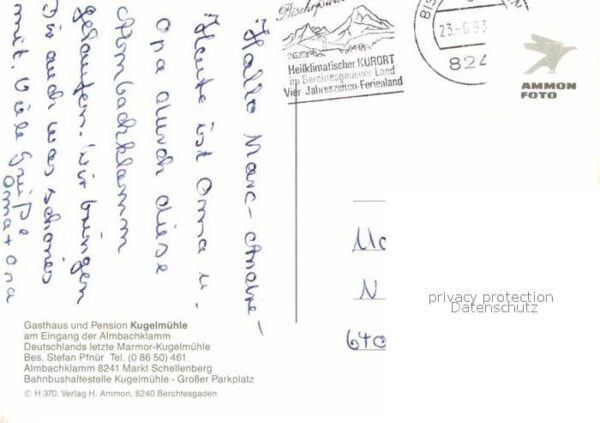 Hallo Marc-Andre-
Heute ist Oma u.
Opa durch diese
Almbachklamm
gelaufen. Wir bringen
Dir auch was schönes
mit. Viele Grüße
Oma + Opa
Bischofswie
Heilklimatischer KURORT
im Berchtesgadener Land
Vier Jahreszeiten-Ferienland
BIS
23-6.93
824
AMMON
FOTO
Ma
N
640
privacy protection
Datenschutz
Gasthaus und Pension Kugelmühle
am Eingang der Almbachklamm
Deutschlands letzte Marmor-Kugelmühle
Bes. Stefan Pfnür Tel. (0 86 50) 461
Almbachklamm 8241 Markt Schellenberg
Bahnbushaltestelle Kugelmühle - Großer Parkplatz
© H 370. Verlag H. Ammon, 8240 Berchtesgaden